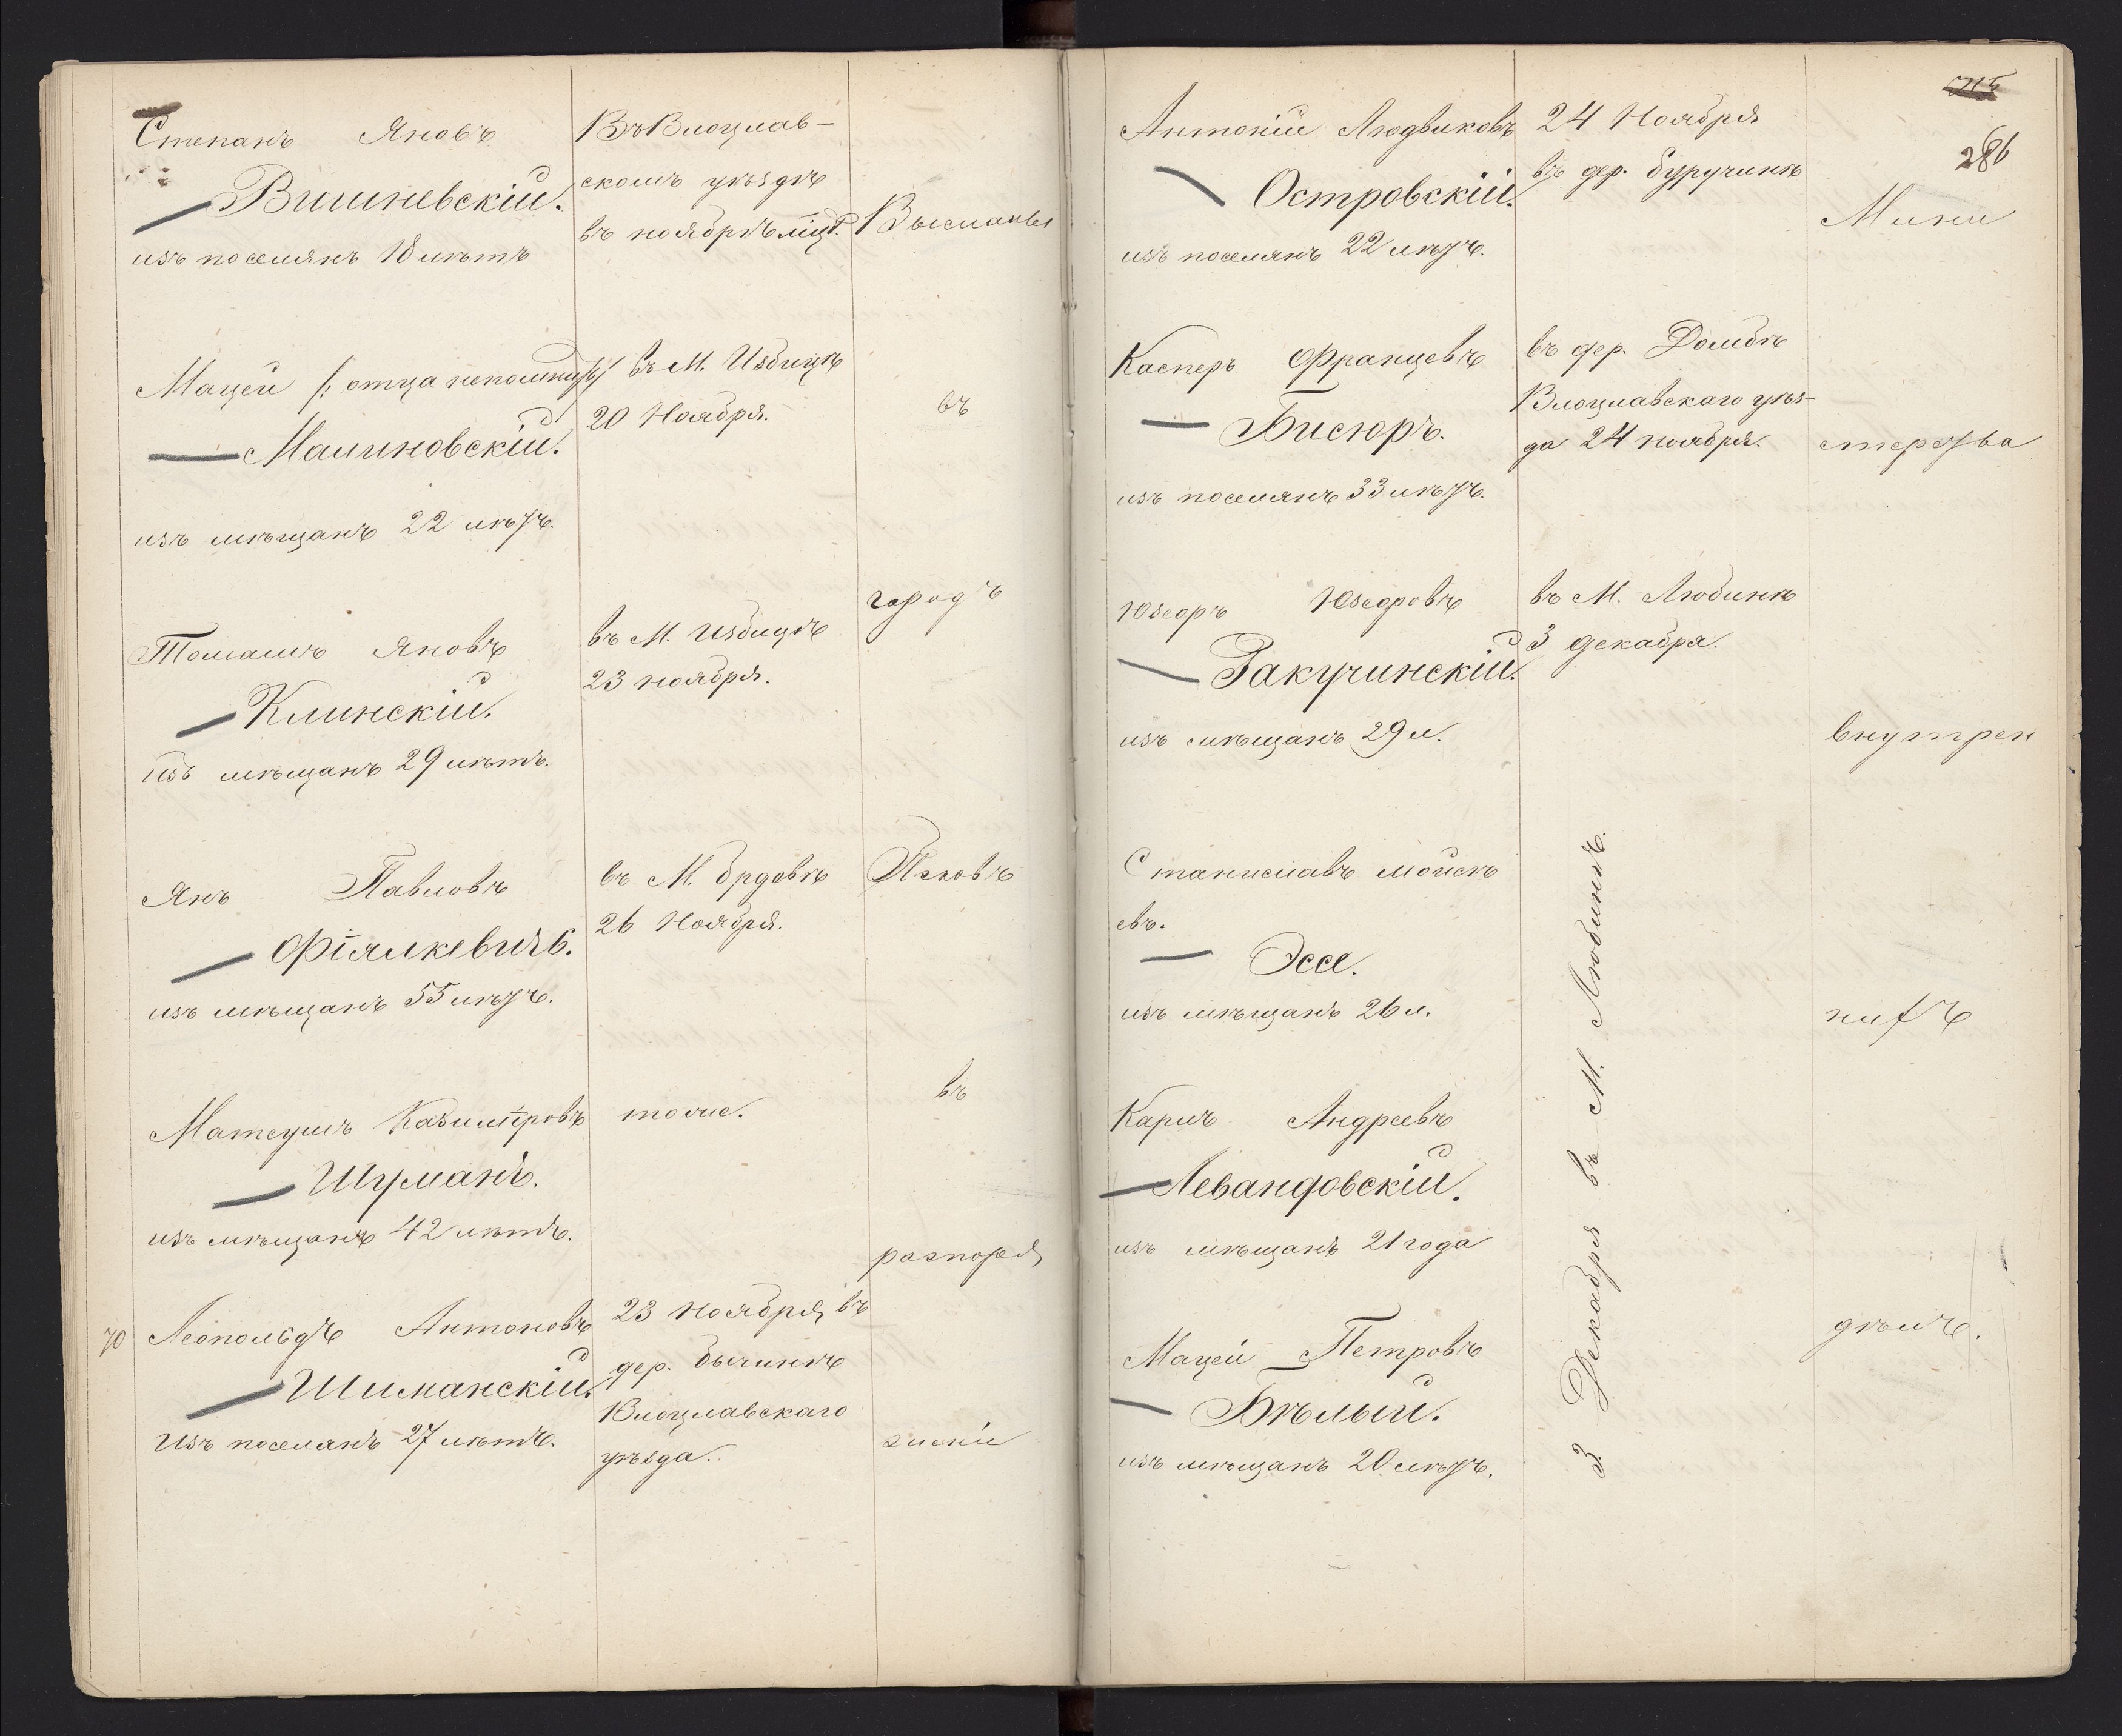 Степанъ Яновъ
Вишневскій.
изъ поселянъ 18 лѣтъ
Въ Влоцлав-
скомъ уѣздѣ
въ ноябрѣ мцѣ.
Высланы
Мацей /: отца непомнитъ :/
Малиновскій.
изъ мѣщанъ 22 лѣтъ.
въ М. Избицѣ
20 Ноября.
въ
Томашъ Яновъ
Клинскій.
изъ мѣщанъ 29 лѣтъ.
въ М. Избицѣ
23 ноября.
городъ
Янъ Павловъ
Фіялкевичъ.
изъ мѣщанъ 55 лѣтъ.
въ М. Брдовѣ
26 Ноября.
Псковъ
Матеушъ Казиміровъ
Шуманъ.
изъ мѣщанъ 42 лѣтъ.
тоже.
въ
распоря
70 Леопольдъ Антоновъ
Шиманскій.
Изъ поселянъ 27 лѣтъ.
23 ноября въ
дер. Бычинѣ
Влоцлавскаго
уѣзда.
женіи
286
Антоній Людвиковъ
Островскій.
изъ поселянъ 22 лѣтъ.
24 Ноября
въ дер. Буручинѣ
Мини
Касперъ Францевъ
Бисюръ.
изъ поселянъ 33 лѣтъ.
въ дер. Домбѣ
Влоцлавскаго уѣз-
да 24 ноября.
стерства
Юзефъ Юзефовъ
Закучинскій.
изъ мѣщанъ 29 л.
въ М. Любинѣ
3 декабря.
внутрен
Станиславъ Мойсѣ
евъ.
Эссе.
изъ мѣщанъ 26 л.
3 Декабря въ М. Любинѣ.
нихъ
Карлъ Андреевъ
Левандовскій.
изъ мѣщанъ 21 года
Мацей Петровъ
Бѣлый.
изъ мѣщанъ 20 лѣтъ.
дѣлъ.